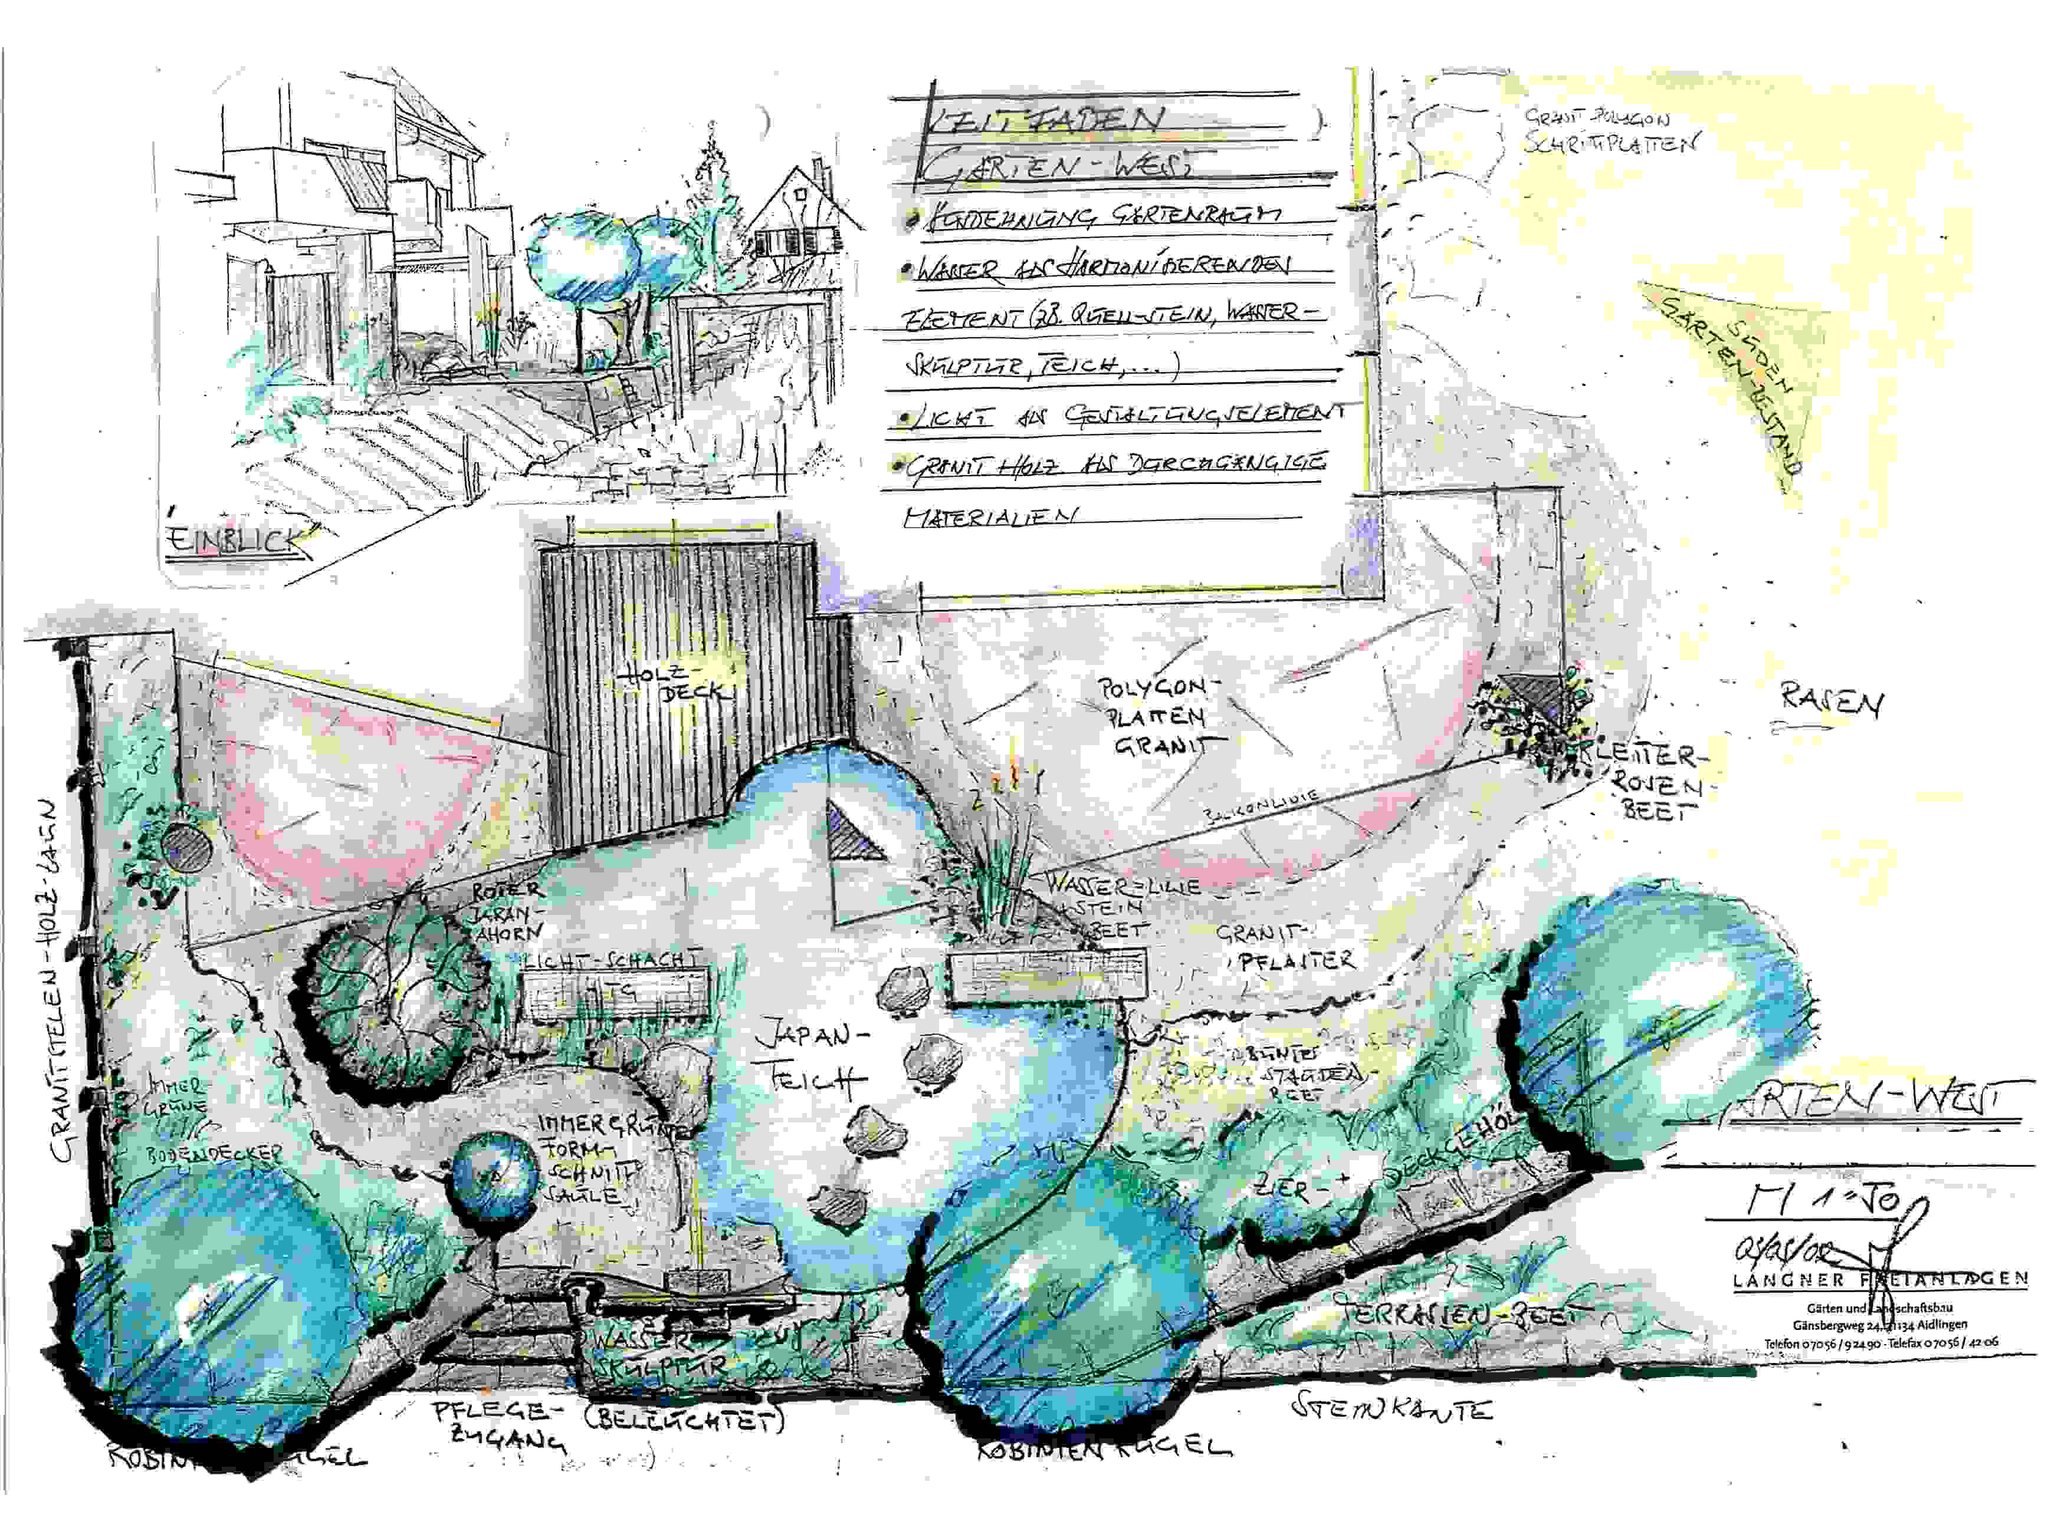 LEITFADEN
GARTEN-WEST
WASSER ALS HARMONISIERENDEN
ELEMENT (ZB. QUELL-STEIN, WASSER-
SKULPTUR, TEICH, ...)
• LICHT ALS GESTALTUNGSELEMENT
• GRANIT HOLZ ALS DURCHGÄNGIGE
MATERIALIEN
"EINBLICK"
GRANIT-POLYGON
SCHRITTPLATTEN
SÜDEN
GARTEN-BESTAND
HOLZ-
DECK
POLYGON-
PLATTEN
GRANIT
RASEN
KLETTER-
ROSEN-
BEET
BALKONLINIE
GRANITSTELEN-HOLZ ZAUN
ROTER
JAPAN-
AHORN
LICHT-SCHACHT
TG
WASSER-LILIE
STEIN
BEET
GRANIT-
PFLASTER
JAPAN-
TEICH
BUNTES
STAUDEN-
BEET
IMMER
GRÜNE
BODENDECKER
IMMERGRÜNE
FORM-
SCHNITT
SÄULE
ZIER- + DECKGEHÖL
ARTEN-WEST
M 1:50
LANGNER FREIANLAGEN
Gärten und Landschaftsbau
Gänsbergweg 24, 71134 Aidlingen
Telefon 07056/92490 - Telefax 07056/4206
TERRASSEN-BEET
WASSER
SKULPTUR
(BELEUCHTET)
PFLEGE-
ZUGANG
STEINKANTE
ROBINIENKUGEL